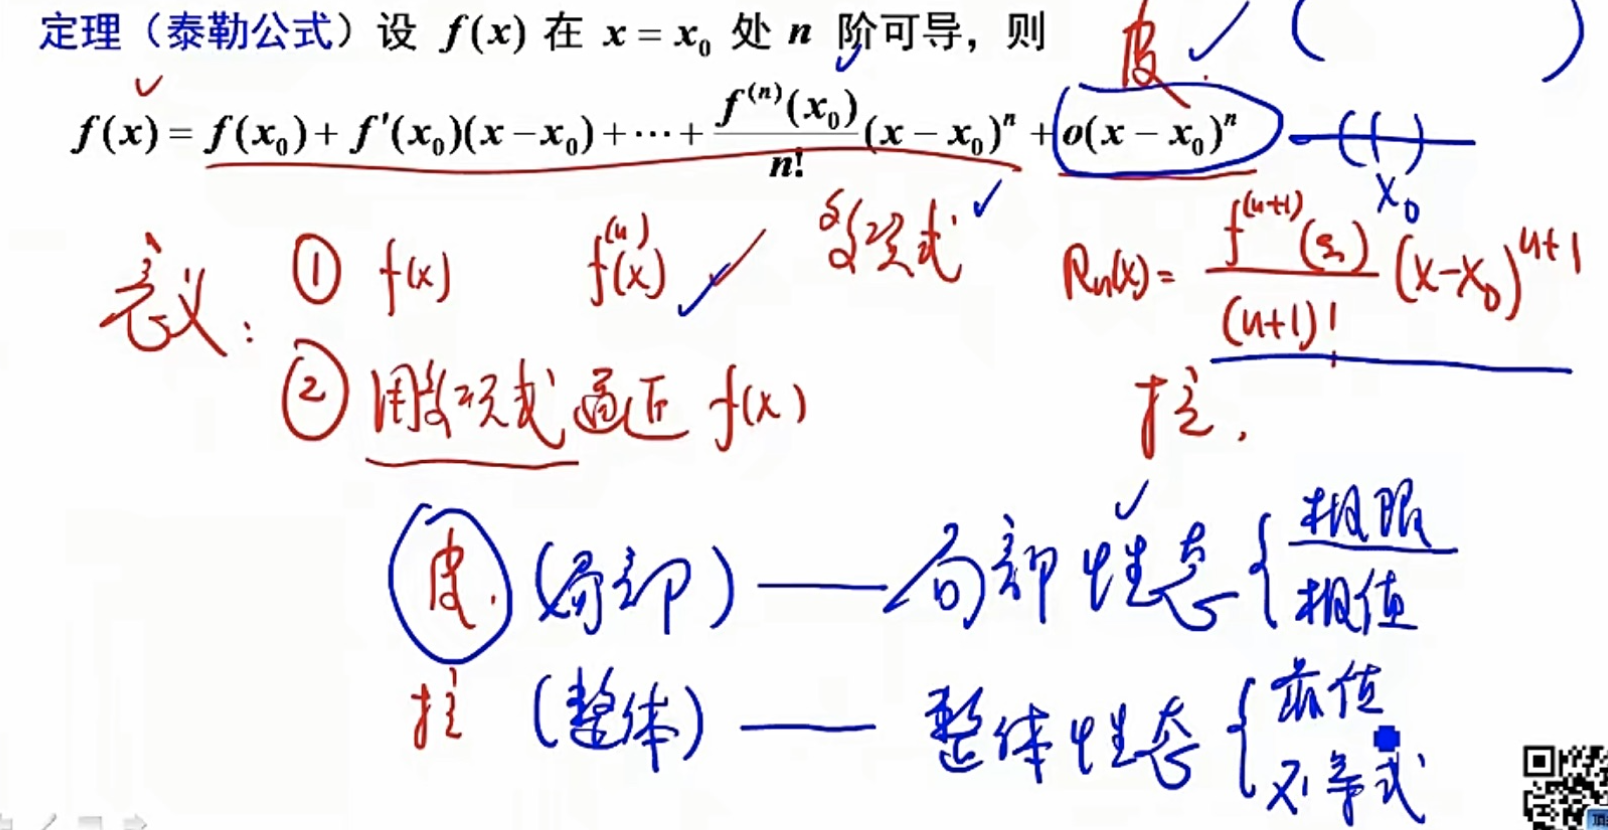 定理（泰勒公式）设 f(x) 在 x = x₀ 处 n 阶可导，则
皮 ( )
f(x) = f(x₀) + f'(x₀)(x − x₀) + ⋯ + f⁽ⁿ⁾(x₀)/n! (x − x₀)ⁿ + o(x − x₀)ⁿ
x₀
意义：① f(x) f⁽ⁿ⁾(x) 多项式
Rn(x) = f⁽ⁿ⁺¹⁾(ξ)/(n+1)! (x−x₀)ⁿ⁺¹
② 用多项式逼近 f(x)
拉.
皮. (局部) —— 局部性态 { 极限
极值
拉 (整体) —— 整体性态 { 最值
不等式